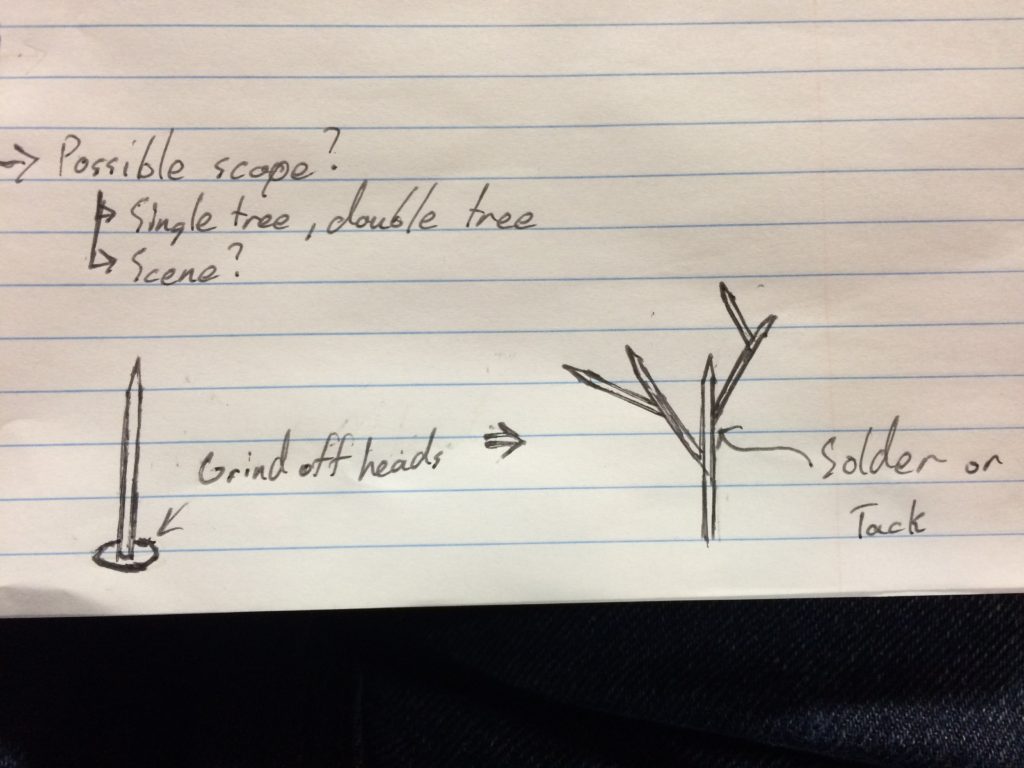 → Possible scope?
↳ Single tree, double tree
↳ Scene?
Grind off heads ⇒
Solder or
Tack